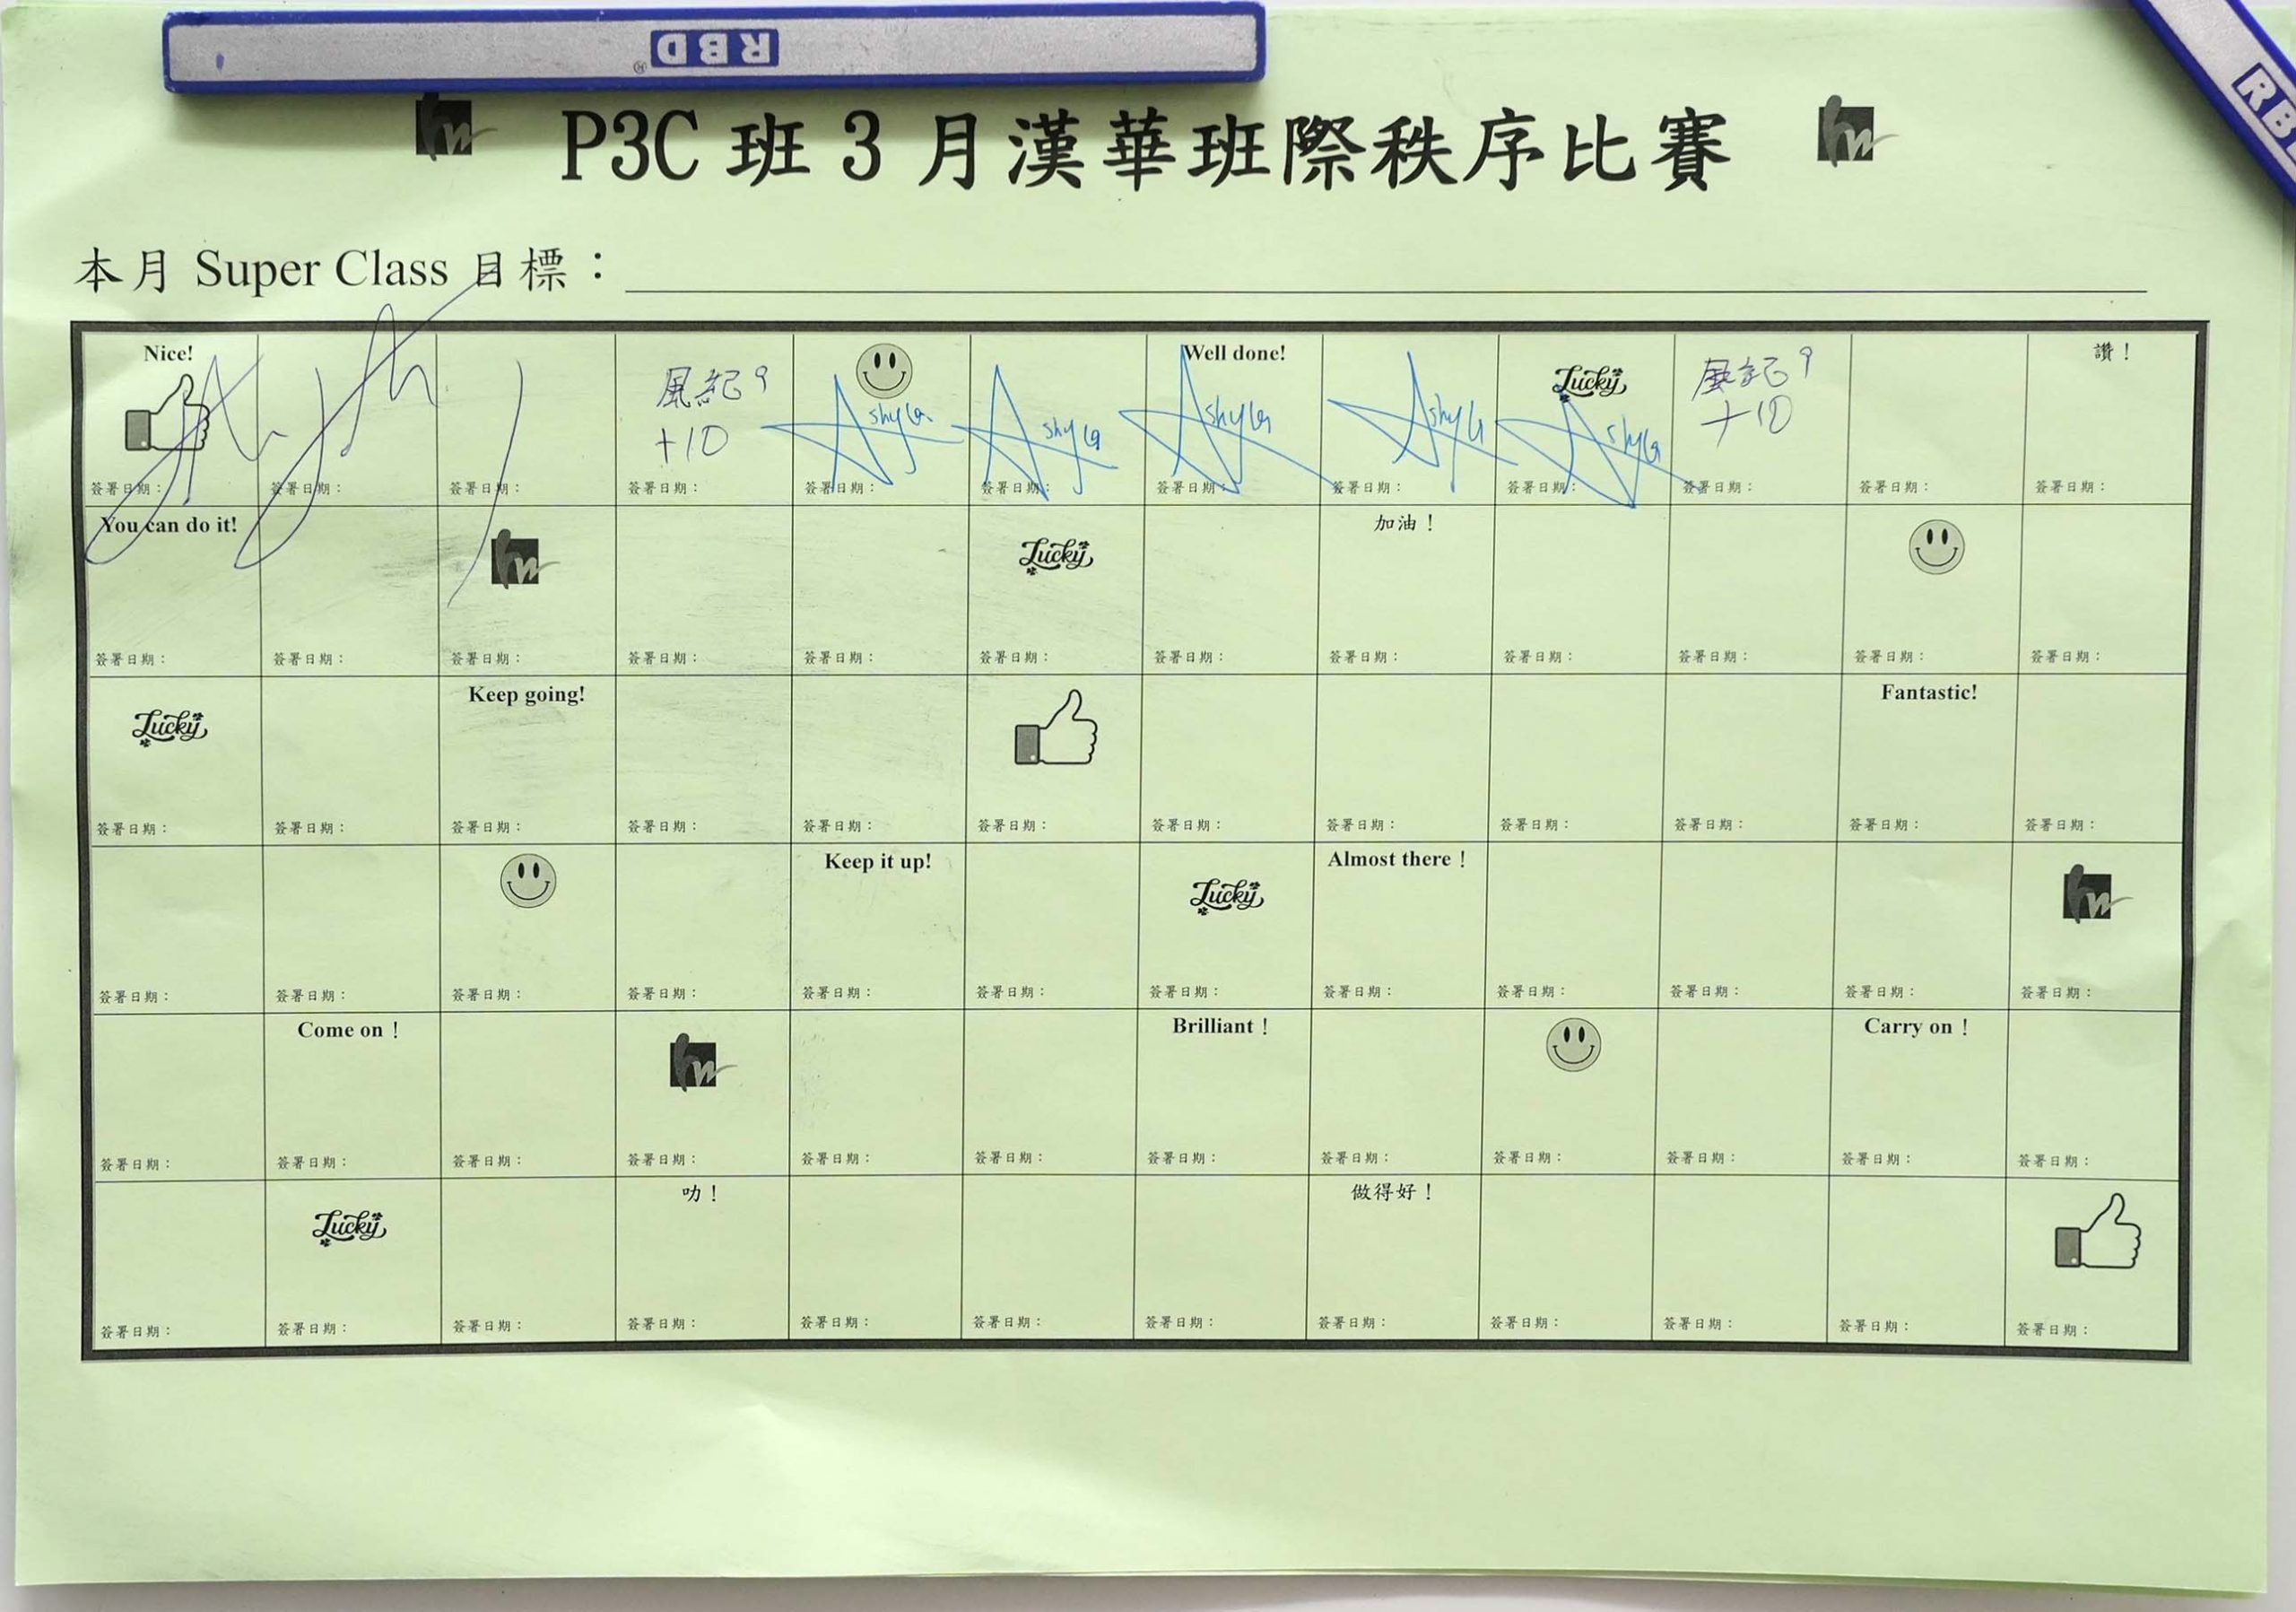 RBD
RBD
P3C 班 3 月漢華班際秩序比賽
本月 Super Class 目標：
Nice! Well done! 讚！
Lucky
風紀 9
+10
Ashya
Ashya
Ashya
Ashya
Ashya
風記 9
+10
簽署日期： 簽署日期： 簽署日期： 簽署日期： 簽署日期： 簽署日期： 簽署日期： 簽署日期： 簽署日期： 簽署日期： 簽署日期： 簽署日期：
You can do it! 加油！
Lucky
簽署日期： 簽署日期： 簽署日期： 簽署日期： 簽署日期： 簽署日期： 簽署日期： 簽署日期： 簽署日期： 簽署日期： 簽署日期： 簽署日期：
Keep going! Fantastic!
Lucky
簽署日期： 簽署日期： 簽署日期： 簽署日期： 簽署日期： 簽署日期： 簽署日期： 簽署日期： 簽署日期： 簽署日期： 簽署日期： 簽署日期：
Keep it up! Almost there！
Lucky
簽署日期： 簽署日期： 簽署日期： 簽署日期： 簽署日期： 簽署日期： 簽署日期： 簽署日期： 簽署日期： 簽署日期： 簽署日期： 簽署日期：
Come on！ Brilliant！ Carry on！
簽署日期： 簽署日期： 簽署日期： 簽署日期： 簽署日期： 簽署日期： 簽署日期： 簽署日期： 簽署日期： 簽署日期： 簽署日期： 簽署日期：
叻！ 做得好！
Lucky
簽署日期： 簽署日期： 簽署日期： 簽署日期： 簽署日期： 簽署日期： 簽署日期： 簽署日期： 簽署日期： 簽署日期： 簽署日期： 簽署日期：